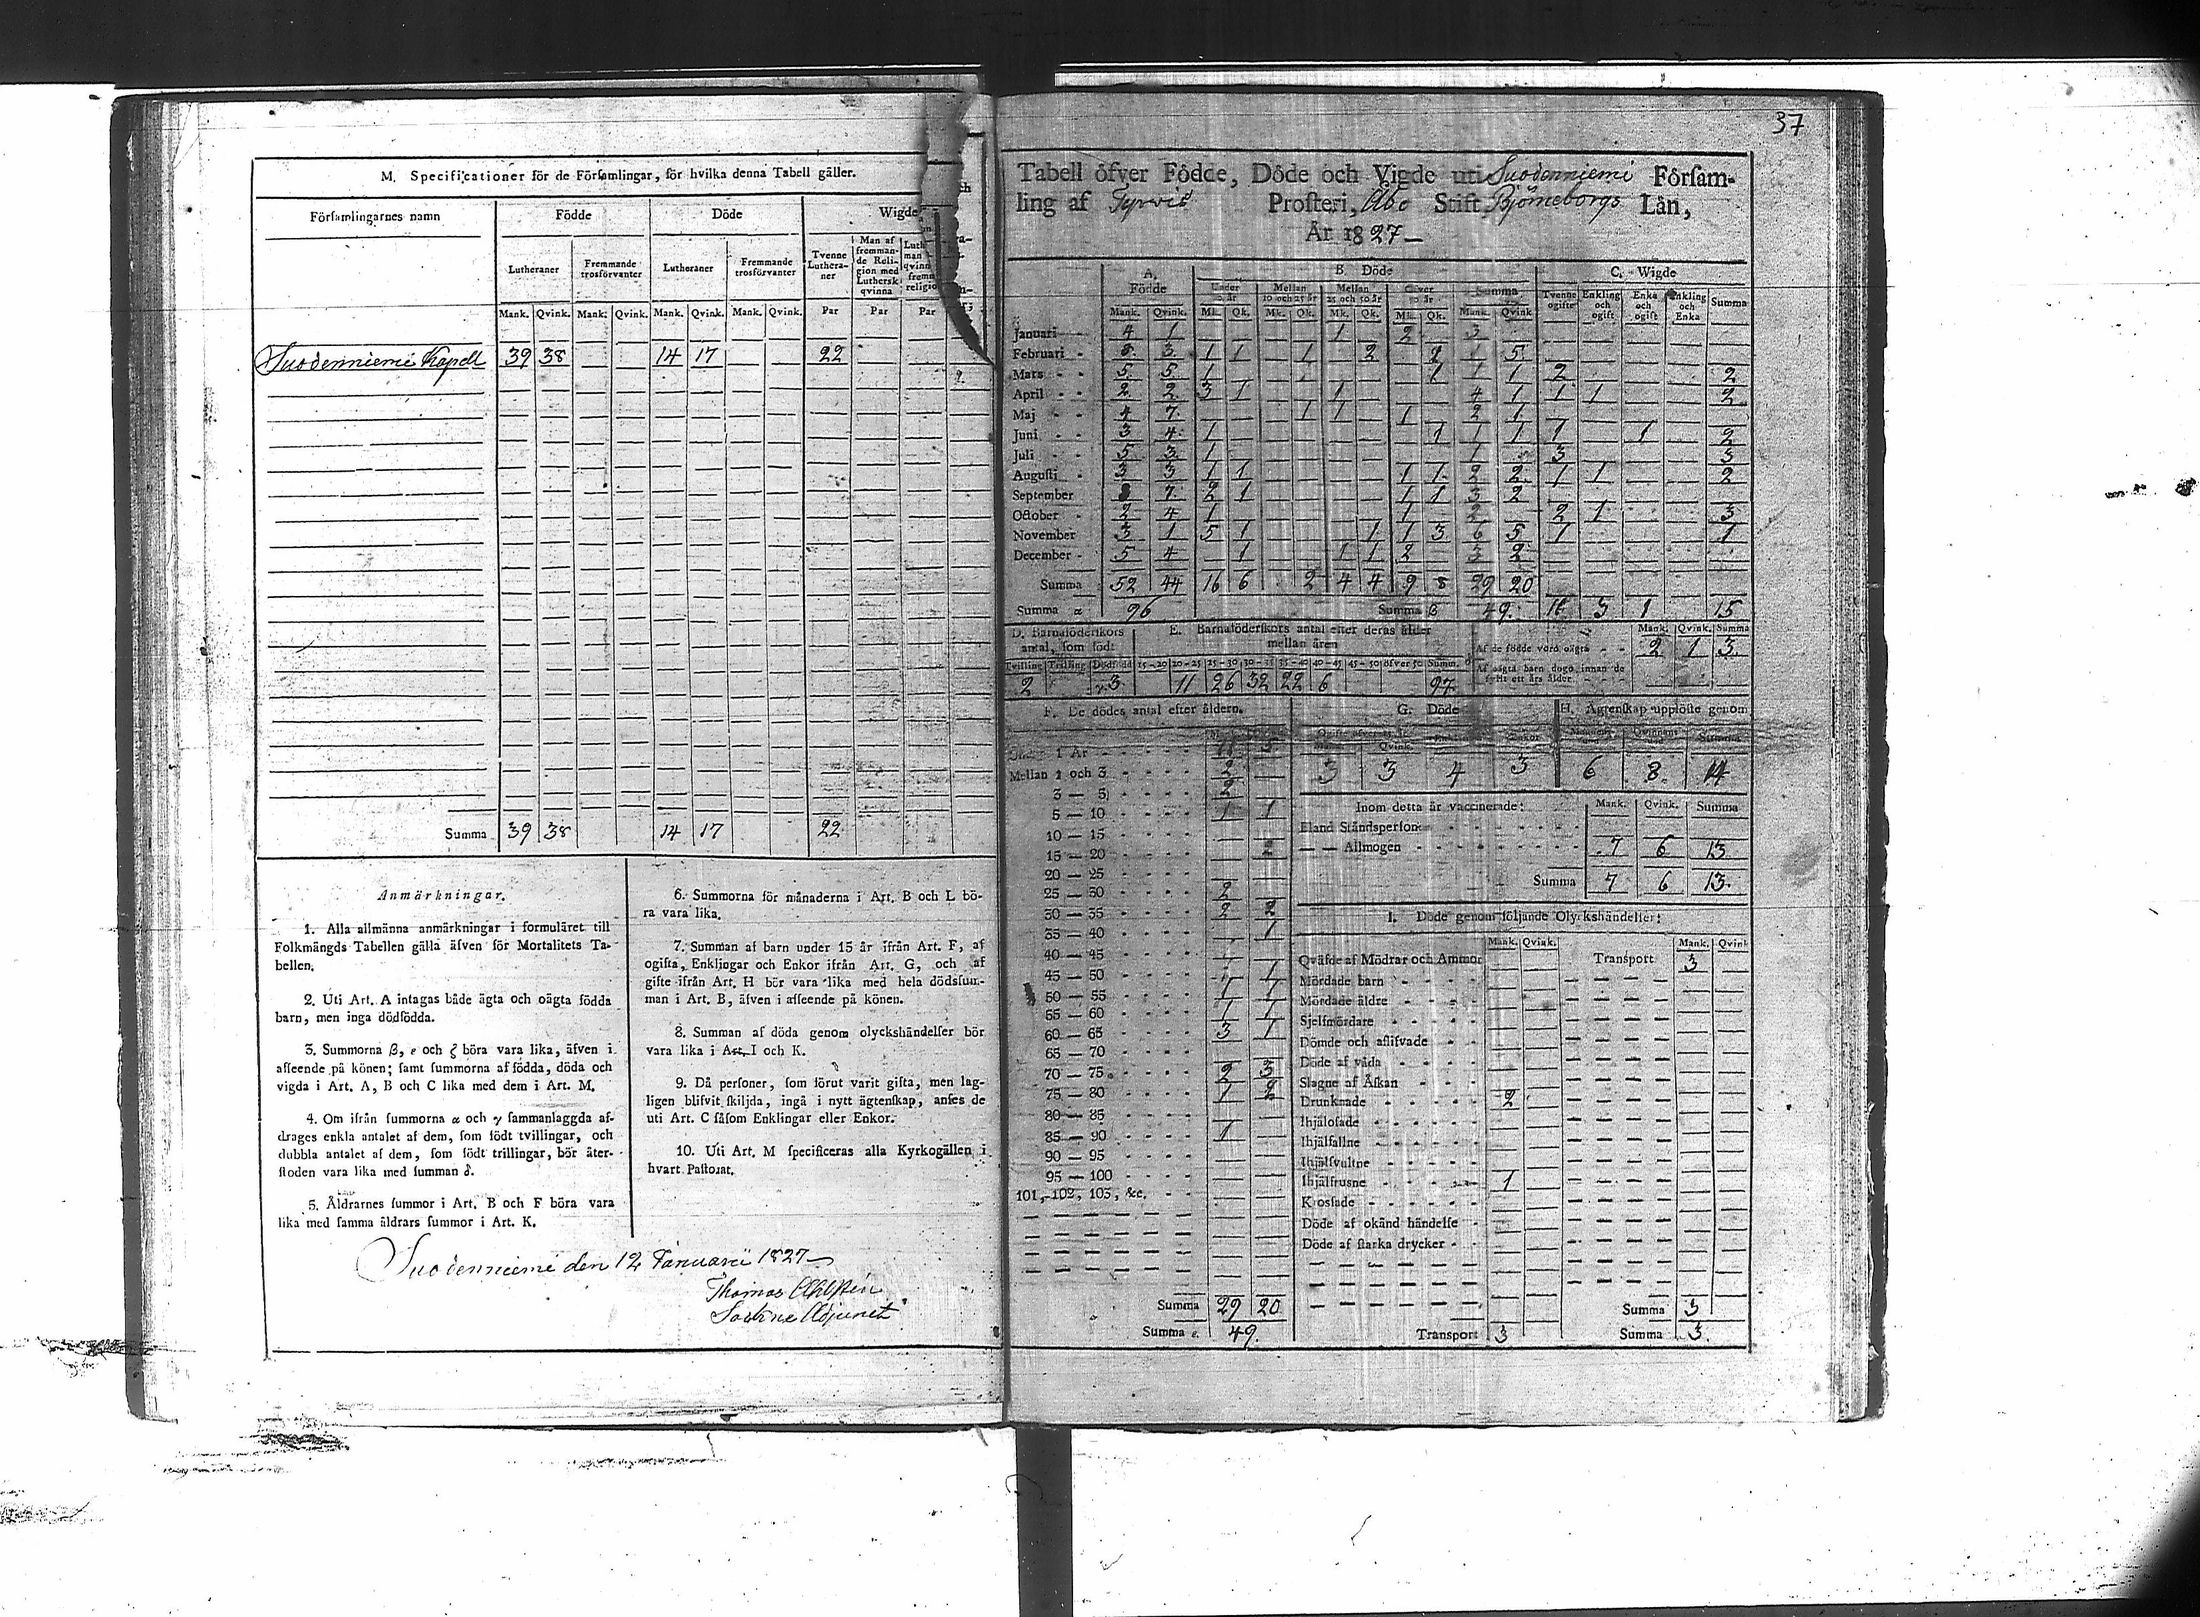 M. Specificationer för de Församlingar, för hvilka denna Tabell gäller.
Församlingarnes namn Födde Döde Wigde
Lutheraner Fremmande trosförvanter Lutheraner Fremmande trosförvanter Tvenne Lutheraner Man af fremmande Religion med Luthersk qvinna
Mank. Qvink. Mank. Qvink. Mank. Qvink. Mank. Qvink. Par Par Par
Suodenniemi Kapell 39 38 14 17 22
Summa 39 38 14 17 22
Anmärkningar.
1. Alla allmänna anmärkningar i formuläret till
Folkmängds Tabellen gälla äfven för Mortalitets Ta-
bellen.
2. Uti Art. A intagas både ägta och oägta födda
barn, men inga dödfödda.
3. Summorna β, ε och ζ böra vara lika, äfven i
afseende på könen; samt summorna af födda, döda och
vigda i Art. A, B och C lika med dem i Art. M.
4. Om ifrån summorna α och γ sammanlaggda af-
drages enkla antalet af dem, som födt tvillingar, och
dubbla antalet af dem, som födt trillingar, bör åter-
stoden vara lika med summan δ.
5. Åldrarnes summor i Art. B och F böra vara
lika med samma åldrars summor i Art. K.
6. Summorna för månaderna i Art. B och L bö-
ra vara lika.
7. Summan af barn under 15 år ifrån Art. F, af
ogifta, Enklingar och Enkor ifrån Art. G, och af
gifte ifrån Art. H bör vara lika med hela dödssum-
man i Art. B, äfven i afseende på könen.
8. Summan af döda genom olyckshändelser bör
vara lika i Art. I och K.
9. Då personer, som förut varit gifta, men lag-
ligen blifvit skiljda, ingå i nytt ägtenskap, anses de
uti Art. C såsom Enklingar eller Enkor.
10. Uti Art. M specificeras alla Kyrkogällen i
hvart Pastorat.
Suodenniemi den 12 Januarii 1827
Thomas
37
Tabell öfver Födde, Döde och Vigde uti Suodenniemi Försam-
ling af Tyrvis Prosteri, Åbo Stift Björneborgs Län,
År 1827
A. Födde B. Döde C. Wigde
Under 10 år Mellan 10 och 25 år Mellan 25 och 50 år Öfver 50 år Summa Tvenne ogifte Enkling och ogift Enka och ogift Enkling och Enka Summa
Mank. Qvink. Mk. Qk. Mk. Qk. Mk. Qk. Mk. Qk. Mank. Qvink
Januari 4 1 1 2 3
Februari 3 1 1 1 2 2 1 5
Mars 5 5 1 1 1 1 2 2
April 2 2 3 1 1 4 1 1 1 2
Maj 4 7 1 1 1 2 1
Juni 3 4 1 1 1 1 1 1 2
Juli 5 3 1 1 3 3
Augusti 3 3 1 1 1 1 2 2 1 1 2
September 7 2 1 1 1 3 2
October 2 4 1 1 2 2 1 3
November 3 1 5 1 1 1 3 6 5 1 1
December 5 4 1 1 1 2 3 2
Summa 52 44 16 6 2 4 4 9 8 29 20
Summa α 96 Summa β 49. 3 1 15
D. Barnaföderskors antal, som födt E. Barnaföderskors antal efter deras ålder mellan åren Mank. Qvink. Summa
Af de födde voro oägta 2 1 3
Tvilling Trilling Dödfödd 15-20 20-25 25-30 30-35 35-40 40-45 45-50 öfver 50 Summ. Af oägta barn dogo innan de fyllt ett års ålder
2 3 11 26 32 22 6 97
F. De dödes antal efter åldern. G. Döde H. Ägtenskap upplöste genom
Under 1 År 11 5
Mellan 1 och 3 2
3 3 4 3 6 8 14
3 — 5 2
5 — 10 1 1
10 — 15
15 — 20 2
20 — 25
25 — 30 2
30 — 35 2 2
35 — 40 1
40 — 45
45 — 50 1
50 — 55 1 1
55 — 60 1 1
60 — 65 3 1
65 — 70
70 — 75 2 3
75 — 80 1 2
80 — 85
85 — 90 1
90 — 95
95 — 100
101, 102, 103, &c.
Summa 29 20
Summa ε. 49.
Inom detta år vaccinerade: Mank. Qvink. Summa
Bland Ståndspersoner
— — Allmogen 7 6 13
Summa 7 6 13
I. Döde genom följande Olyckshändelser:
Mank. Qvink. Mank. Qvink
Qväfde af Mödrar och Ammor Transport 3
Mördade barn
Mördade äldre
Sjelfmördare
Dömde och aflifvade
Döde af våda
Slagne af Åskan
Drunknade 2
Ihjälosade
Ihjälfallne
Ihjälsvultne
Ihjälfrusne 1
Krossade
Döde af okänd händelse
Döde af starka drycker
Summa 3
Transport 3 Summa 3.